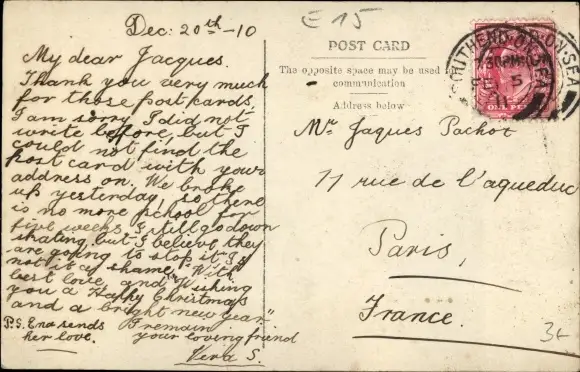 Dec: 20th -10
My dear Jacques.
Thank you very much
for those post cards,
I am sorry I did not
write before, but I
could not find the
post card with your
address on. We broke
up yesterday, so there
is no more school for
five weeks. I still go down
skating, but I believe they
are going to stop it. Is
not it a shame. With
best love and wishing
you a Happy Christmas
and a bright new year."
I remain
your loving friend
Vera S.
P.S. Ena sends
her love.
E 15
POST CARD
The opposite space may be used for
communication
Address below
Mr Jaques Pachot
11 rue de l'aqueduc
Paris,
France.
SOUTHEND-ON-SEA
7.30PM
ONE PENNY